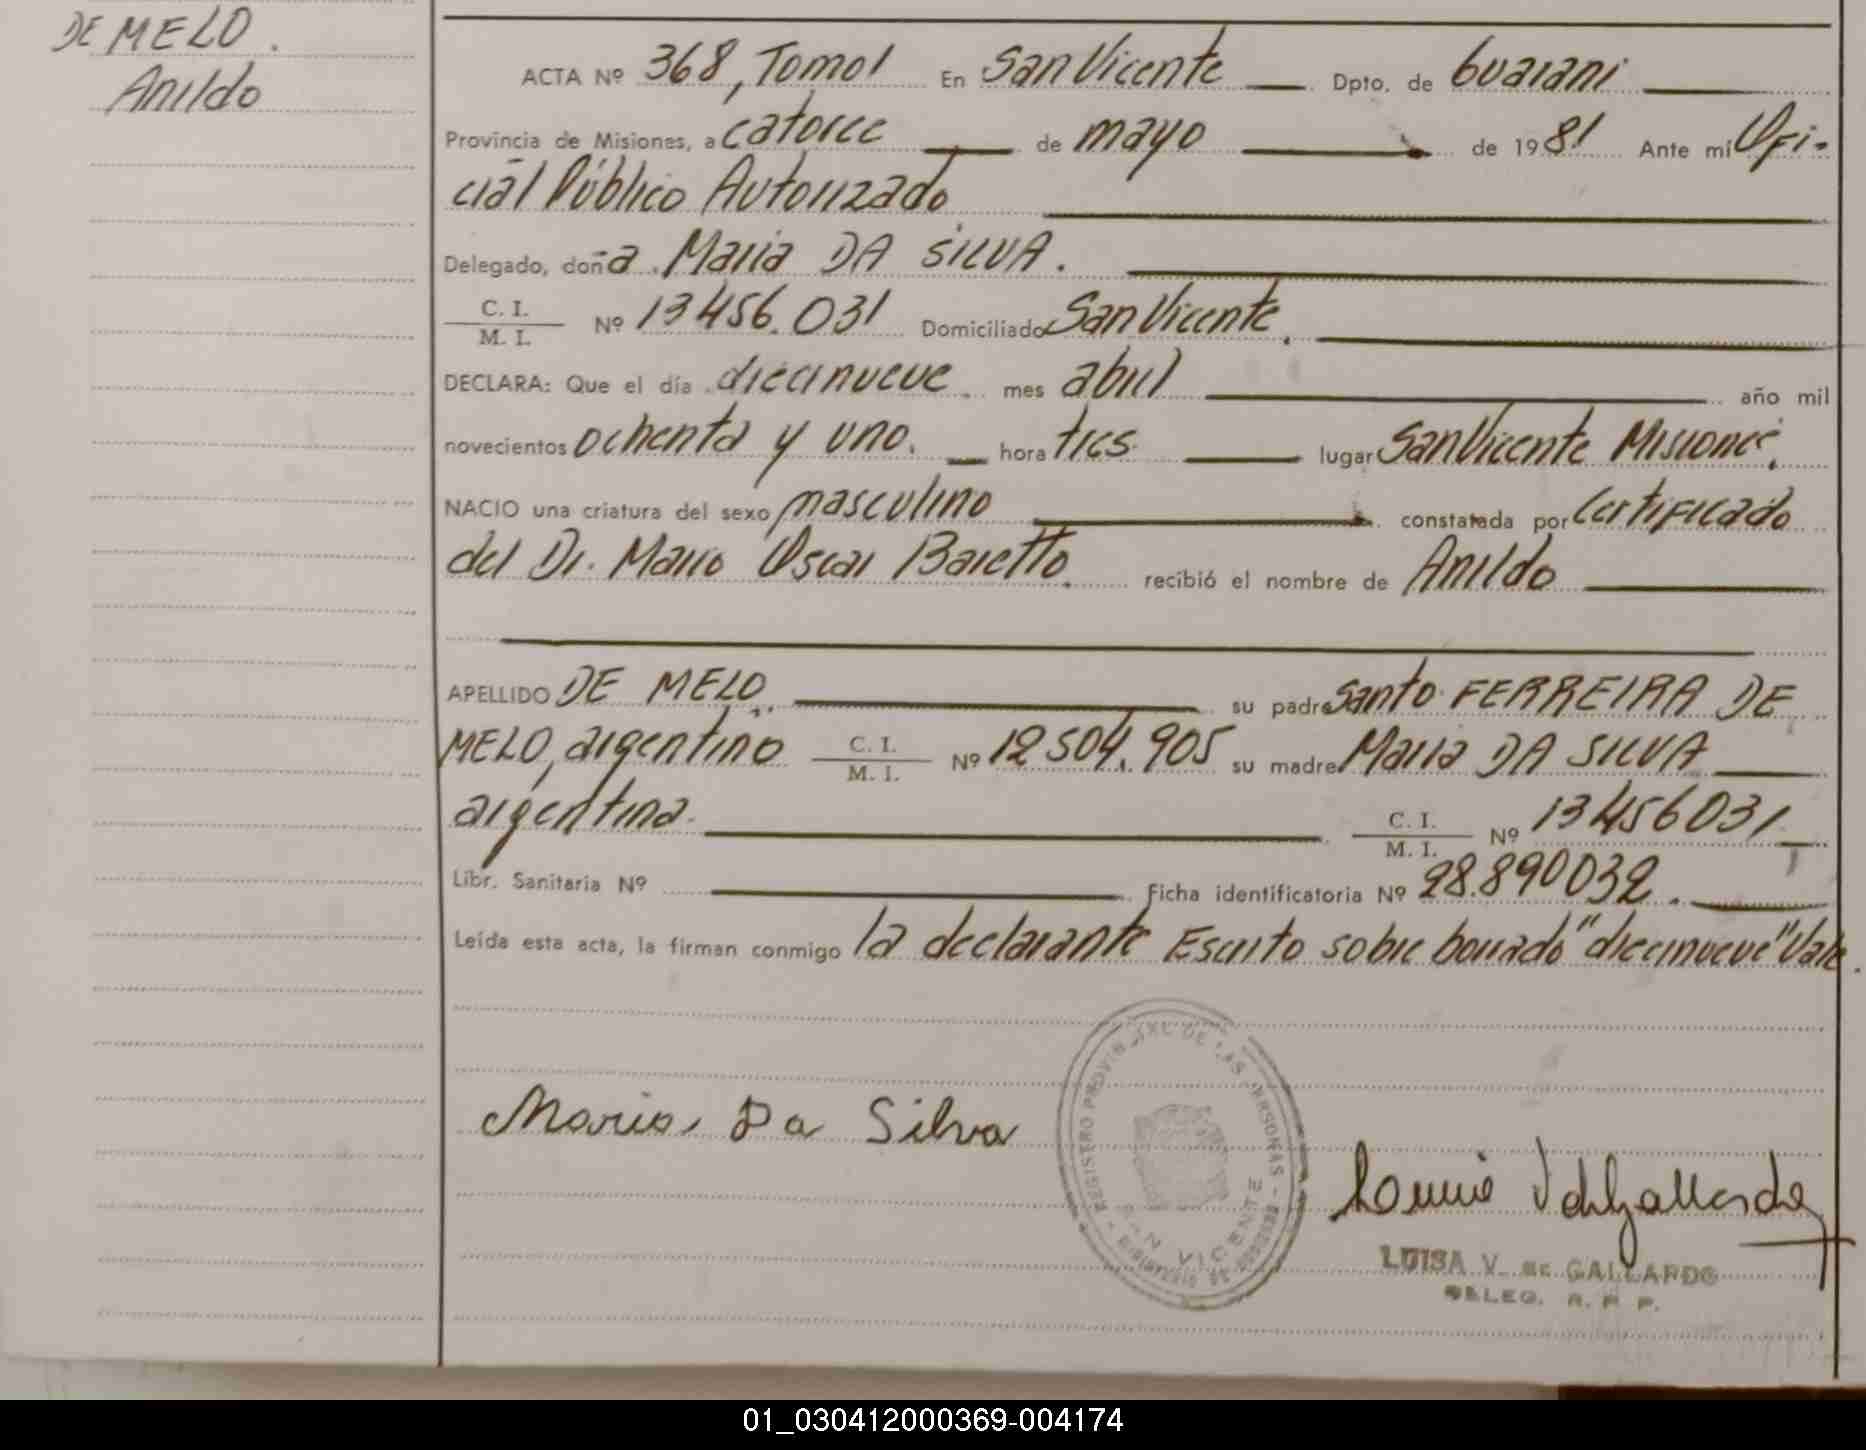 DE MELO.
Anildo
ACTA Nº 368, Tomo I En San Vicente Dpto. de Guarani
Provincia de Misiones, a catorce de mayo de 1981 Ante mi Ofi-
cial Público Autorizado
Delegado, doña Maria DA SILVA.
C. I.
M. I. Nº 13456.031 Domiciliado San Vicente.
DECLARA: Que el día diecinueve mes abril año mil
novecientos ochenta y uno. hora tres lugar San Vicente Misiones.
NACIO una criatura del sexo masculino constatada por Certificado
del Dr. Mario Oscar Baretto. recibió el nombre de Anildo
APELLIDO DE MELO. su padre Santo FERREIRA DE
MELO, argentino C. I. M. I. Nº 12504.905 su madre Maria DA SILVA
argentina. C. I. M. I. Nº 13456031
Libr. Sanitaria Nº Ficha identificatoria Nº 28.890032.
Leída esta acta, la firman conmigo la declarante Escrito sobre borrado "diecinueve" Vale.
Maria Da Silva
REGISTRO PROVINCIAL DE LAS PERSONAS
SAN VICENTE
LUISA V. de GALLARDO
DELEG. R. P. P.
01_030412000369-004174